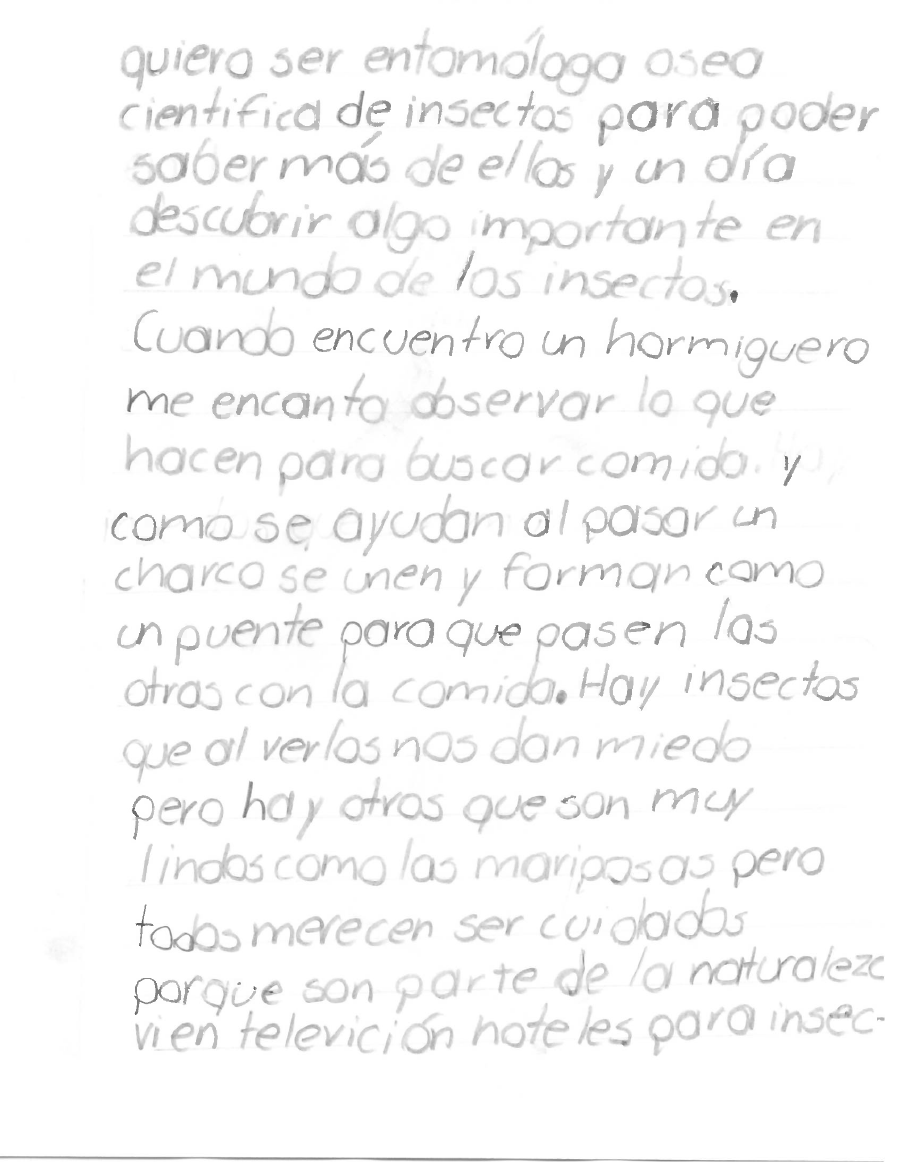 quiero ser entomóloga osea
cientifica de insectos para poder
saber más de ellos y un día
descubrir algo importante en
el mundo de los insectos.
Cuando encuentro un hormiguero
me encanta observar lo que
hacen para buscar comida. y
como se ayudan al pasar un
charco se unen y forman como
un puente para que pasen las
otras con la comida. Hay insectos
que al verlos nos dan miedo
pero hay otros que son muy
lindos como las mariposas pero
todos merecen ser cuidados
porque son parte de la naturaleza
vi en televición hoteles para insec-